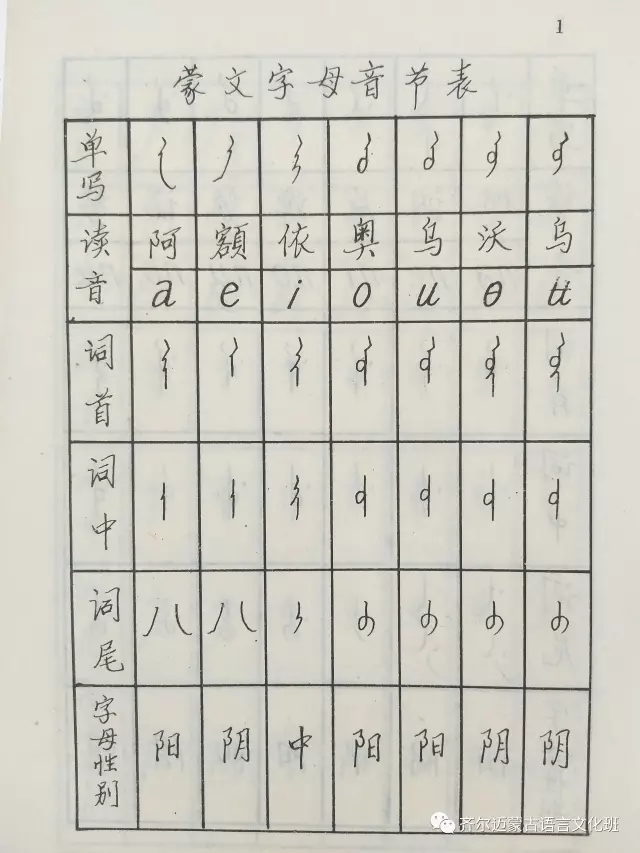 1
蒙文字母音节表
单写 ᠠ ᠡ ᠢ ᠣ ᠤ ᠥ ᠦ
读音 阿 額 依 奥 乌 沃 乌
a e i o u ɵ ʉ
词首 ᠠ‍ ᠡ‍ ᠢ‍ ᠣ‍ ᠤ‍ ᠥ‍ ᠦ‍
词中 ‍ᠠ‍ ‍ᠡ‍ ‍ᠢ‍ ‍ᠣ‍ ‍ᠤ‍ ‍ᠥ‍ ‍ᠦ‍
词尾 ‍ᠠ ‍ᠡ ‍ᠢ ‍ᠣ ‍ᠤ ‍ᠥ ‍ᠦ
字母性别 阳 阴 中 阳 阳 阴 阴
齐尔迈蒙古语言文化班